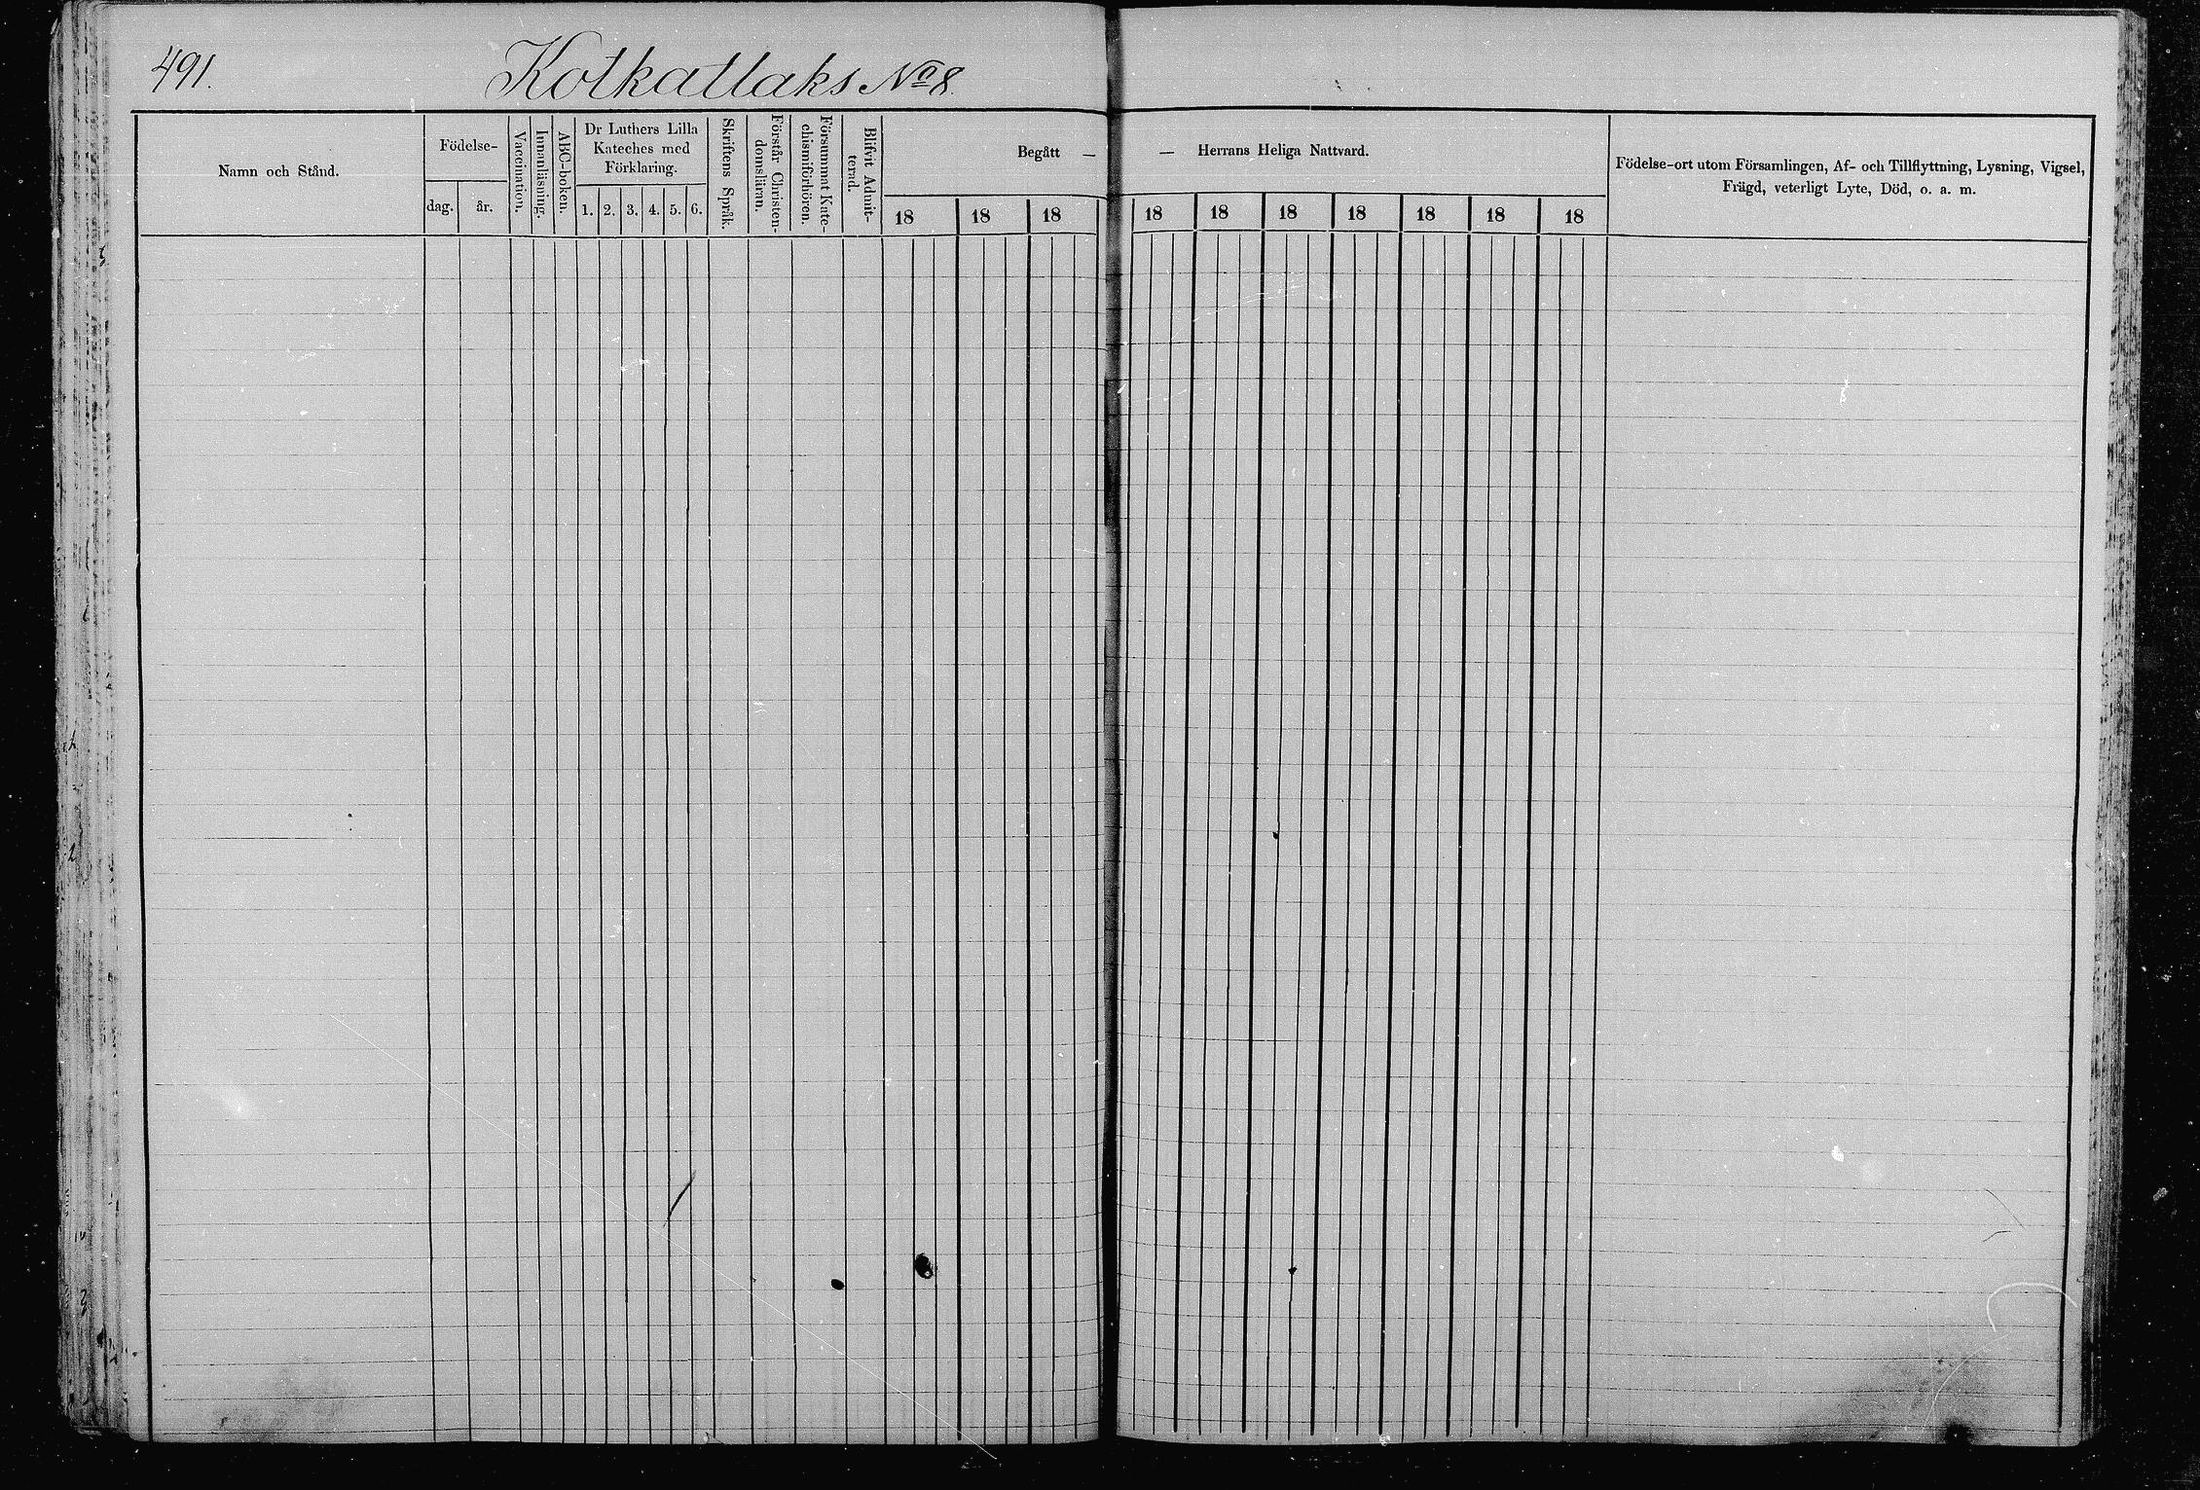 491.
Kotkatlaks No 8.
Namn och Stånd.
Födelse-
dag.
år.
Vaccination.
Innanläsning.
ABC-boken.
Dr Luthers Lilla
Kateches med
Förklaring.
1. 2. 3. 4. 5. 6.
Skriftens Språk.
Förstår Christen-
domsläran.
Försummat Kate-
chismiförhören.
Blifvit Admit-
terad.
Begått — — Herrans Heliga Nattvard.
18 18 18 18 18 18 18 18 18 18
Födelse-ort utom Församlingen, Af- och Tillflyttning, Lysning, Vigsel,
Frägd, veterligt Lyte, Död, o. a. m.